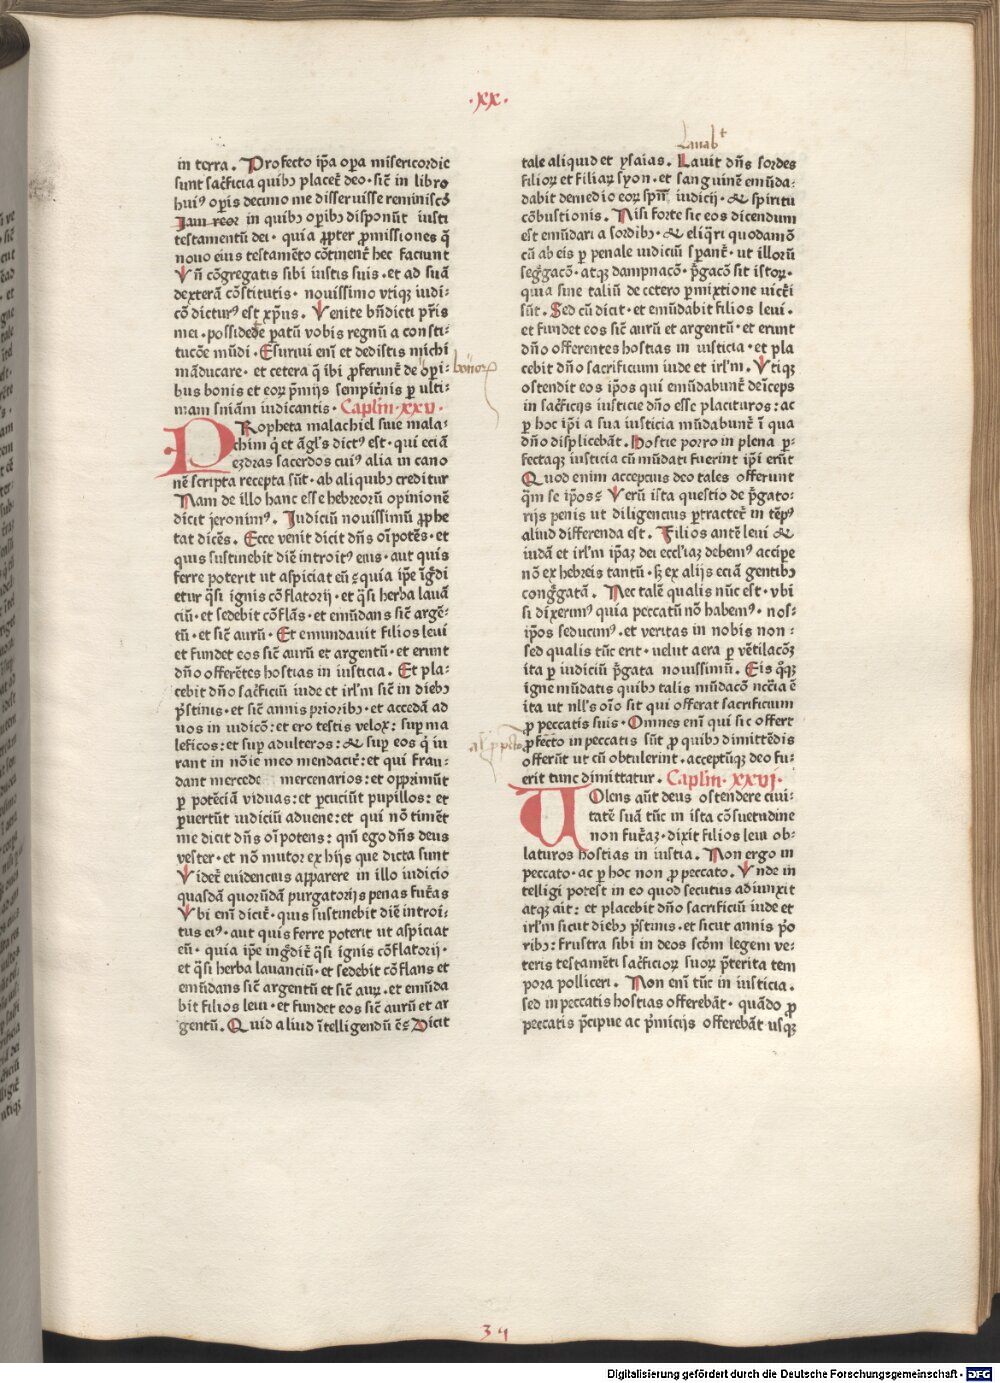 ·xx·
in terra. Profecto ip̃a oꝑa misericordie
sunt sac̃ficia quibꝫ placet̃ deo· sic̃ in libro
huiꝰ oꝑis decimo me disseruisse reminiscõ
Jam reor in quibꝫ oꝑibꝫ disponũt iusti
testamentũ dei· quia ꝓpter ꝓmissiones q̃
nouo eius testamẽto cõtinent̃ hec faciunt
Vñ cõgregatis sibi iustis suis· et ad suã
dexterã cõstitutis· nouissimo vtiqꝫ iudi-
cõ dicturꝰ est xp̃us. Venite bñdicti pr̃is
mei· possidete ꝑatũ vobis regnũ a consti-
tucõe mũdi. Esuriui em̃ et dedistis michi
mãducare· et cetera q̃ ibi ꝓferunt̃ de oꝑi-
bus bonis et eoꝝ p̃mijs sempit̃nis ꝑ ulti-
mam sniãm iudicantis. Caplm̃·xxv·
PRopheta malachiel siue mala-
chim q̃ et ãgl̃s dictꝰ est· qui eciã
ezdras sacerdos cuiꝰ alia in cano
nẽ scripta recepta sũt· ab aliquibꝫ creditur
Nam de illo hanc esse hebreorũ opinionẽ
dicit jeronimꝰ. Judiciũ nouissimũ ꝓphe
tat dicẽs. Ecce venit dicit dñs oĩpotẽs· et
quis sustinebit diẽ introitꝰ eius· aut quis
ferre poterit ut aspiciat eũ· quia ip̃e ĩg̃di
etur q̃si ignis cõflatorij· et q̃si herba lauã
ciũ· et sedebit cõflãs· et emũdans sic̃ argẽ-
tũ· et sic̃ aurũ. Et emundauit filios leui
et fundet eos sic̃ aurũ et argentũ· et erunt
dño offerẽtes hostias in iusticia. Et pla-
cebit dño sac̃ficiũ iude et irl̃m sic̃ in diebꝫ
p̃stinis· et sic̃ annis prioribꝫ· et accedã ad
uos in iudicõ: et ero testis velox: suꝑ ma
leficos: et suꝑ adulteros: & suꝑ eos q̃ iu
rant in nõie meo mendacit̃: et qui frau-
dant mercede mercenarios: et opprimũt
ꝑ potẽciã viduas: et ꝑcuciũt pupillos: et
ꝑuertũt iudiciũ aduene: et qui nõ timẽt
me dicit dñs oĩpotens: qm̃ ego dñs deus
vester· et nõ mutor ex hijs que dicta sunt
Videt̃ euidencius apparere in illo iudicio
quasdã quorũdã purgatorijs penas futãs
Vbi em̃ dicit̃· quis sustinebit diẽ introi-
tus eiꝰ· aut quis ferre poterit ut aspiciat
eũ· quia ip̃e ing̃dit̃ q̃si ignis cõflatorij·
et q̃si herba lauanciũ· et sedebit cõflans et
emũdans sic̃ argentũ et sic̃ auꝝ· et emũda
bit filios leui· et fundet eos sic̃ aurũ et ar
gentũ. Quid aliud ĩtelligendũ ẽ· Dicit
bonoꝝ
Lauabt
tale aliquid et ysaias. Lauit dñs sordes
filioꝝ et filiaꝝ syon· et sanguinẽ emũda-
dabit de medio eoꝝ spũ iudicij· & spiritu
cõbustionis. Nisi forte sic eos dicendum
est emũdari a sordibꝫ· & eliq̃ri quodamõ
cũ ab eis ꝑ penale iudiciũ sꝑant̃· ut illorũ
seg̃gacõ· atqꝫ dampnacõ· p̃gacõ sit istoꝝ·
quia sine taliũ de cetero ꝑmixtione vict̃i
sũt. Sed cũ dicit· et emũdabit filios leui·
et fundet eos sic̃ aurũ et argentũ· et erunt
dño offerentes hostias in iusticia· et pla
cebit dño sacrificum iude et irl̃m. Vtiqꝫ
ostendit eos ip̃os qui emũdabunt̃ deĩceps
in sac̃ficijs iusticie dño esse placituros: ac
ꝑ hoc ip̃i a sua iusticia mũdabunt̃ ĩ qua
dño displicebãt. Hostie porro in plena ꝑ-
fectaqꝫ iusticia cũ mũdati fuerint ip̃i erũt
Quod enim accepcius deo tales offerunt
q̃m se ip̃os· Verũ ista questio de p̃gato-
rijs penis ut diligencius ꝑtractet̃ in tẽpꝰ
aliud differenda est. Filios antẽ leui &
iudã et irl̃m ip̃aꝫ dei eccl'iaꝫ debemꝰ accipe
nõ ex hebreis tantũ· sꝫ ex alijs eciã gentibꝫ
cong̃gatã. Nec talẽ qualis nũc est· vbi
si dixerimꝰ quia peccatũ nõ habemꝰ· nos-
ip̃os seducimꝰ· et veritas in nobis non-
sed qualis tũc erit· velut aera ꝑ vẽtilacõꝫ
ita ꝑ iudiciũ p̃gata nouissimũ. Eis q̃qꝫ
igne mũdatis quibꝫ talis mũdacõ ncc̃ia ẽ
ita ut nll's oĩo sit qui offerat sacrificium
ꝓ peccatis suis. Omnes em̃ qui sic offert
ꝓfecto in peccatis sũt ꝓ quibꝫ dimittẽdis
offerũt ut cũ obtulerint· acceptũqꝫ deo fu-
erit tunc dimittatur. Caplm̃·xxvj·
VOlens aũt deus ostendere ciui-
tatẽ suã tũc in ista cõsuetudine
non futãꝫ· dixit filios leui ob-
laturos hostias in iustia. Non ergo in
peccato· ac ꝑ hoc non ꝓ peccato. Vnde in
telligi potest in eo quod secutus adiunxit
atqꝫ ait: et placebit dño sacrificiũ iude et
irl̃m sicut diebꝫ p̃stinis· et sicut annis p̃o
ribꝫ: frustra sibi in deos scõm legem ve-
teris testamẽti sac̃ficioꝝ suoꝝ p̃terita tem
pora polliceri. Non em̃ tũc in iusticia.
sed in peccatis hostias offerebãt· quãdo ꝓ
peccatis p̃cipue ac p̃micijs offerebãt usqꝫ
34
Digitalisierung gefördert durch die Deutsche Forschungsgemeinschaft - DFG